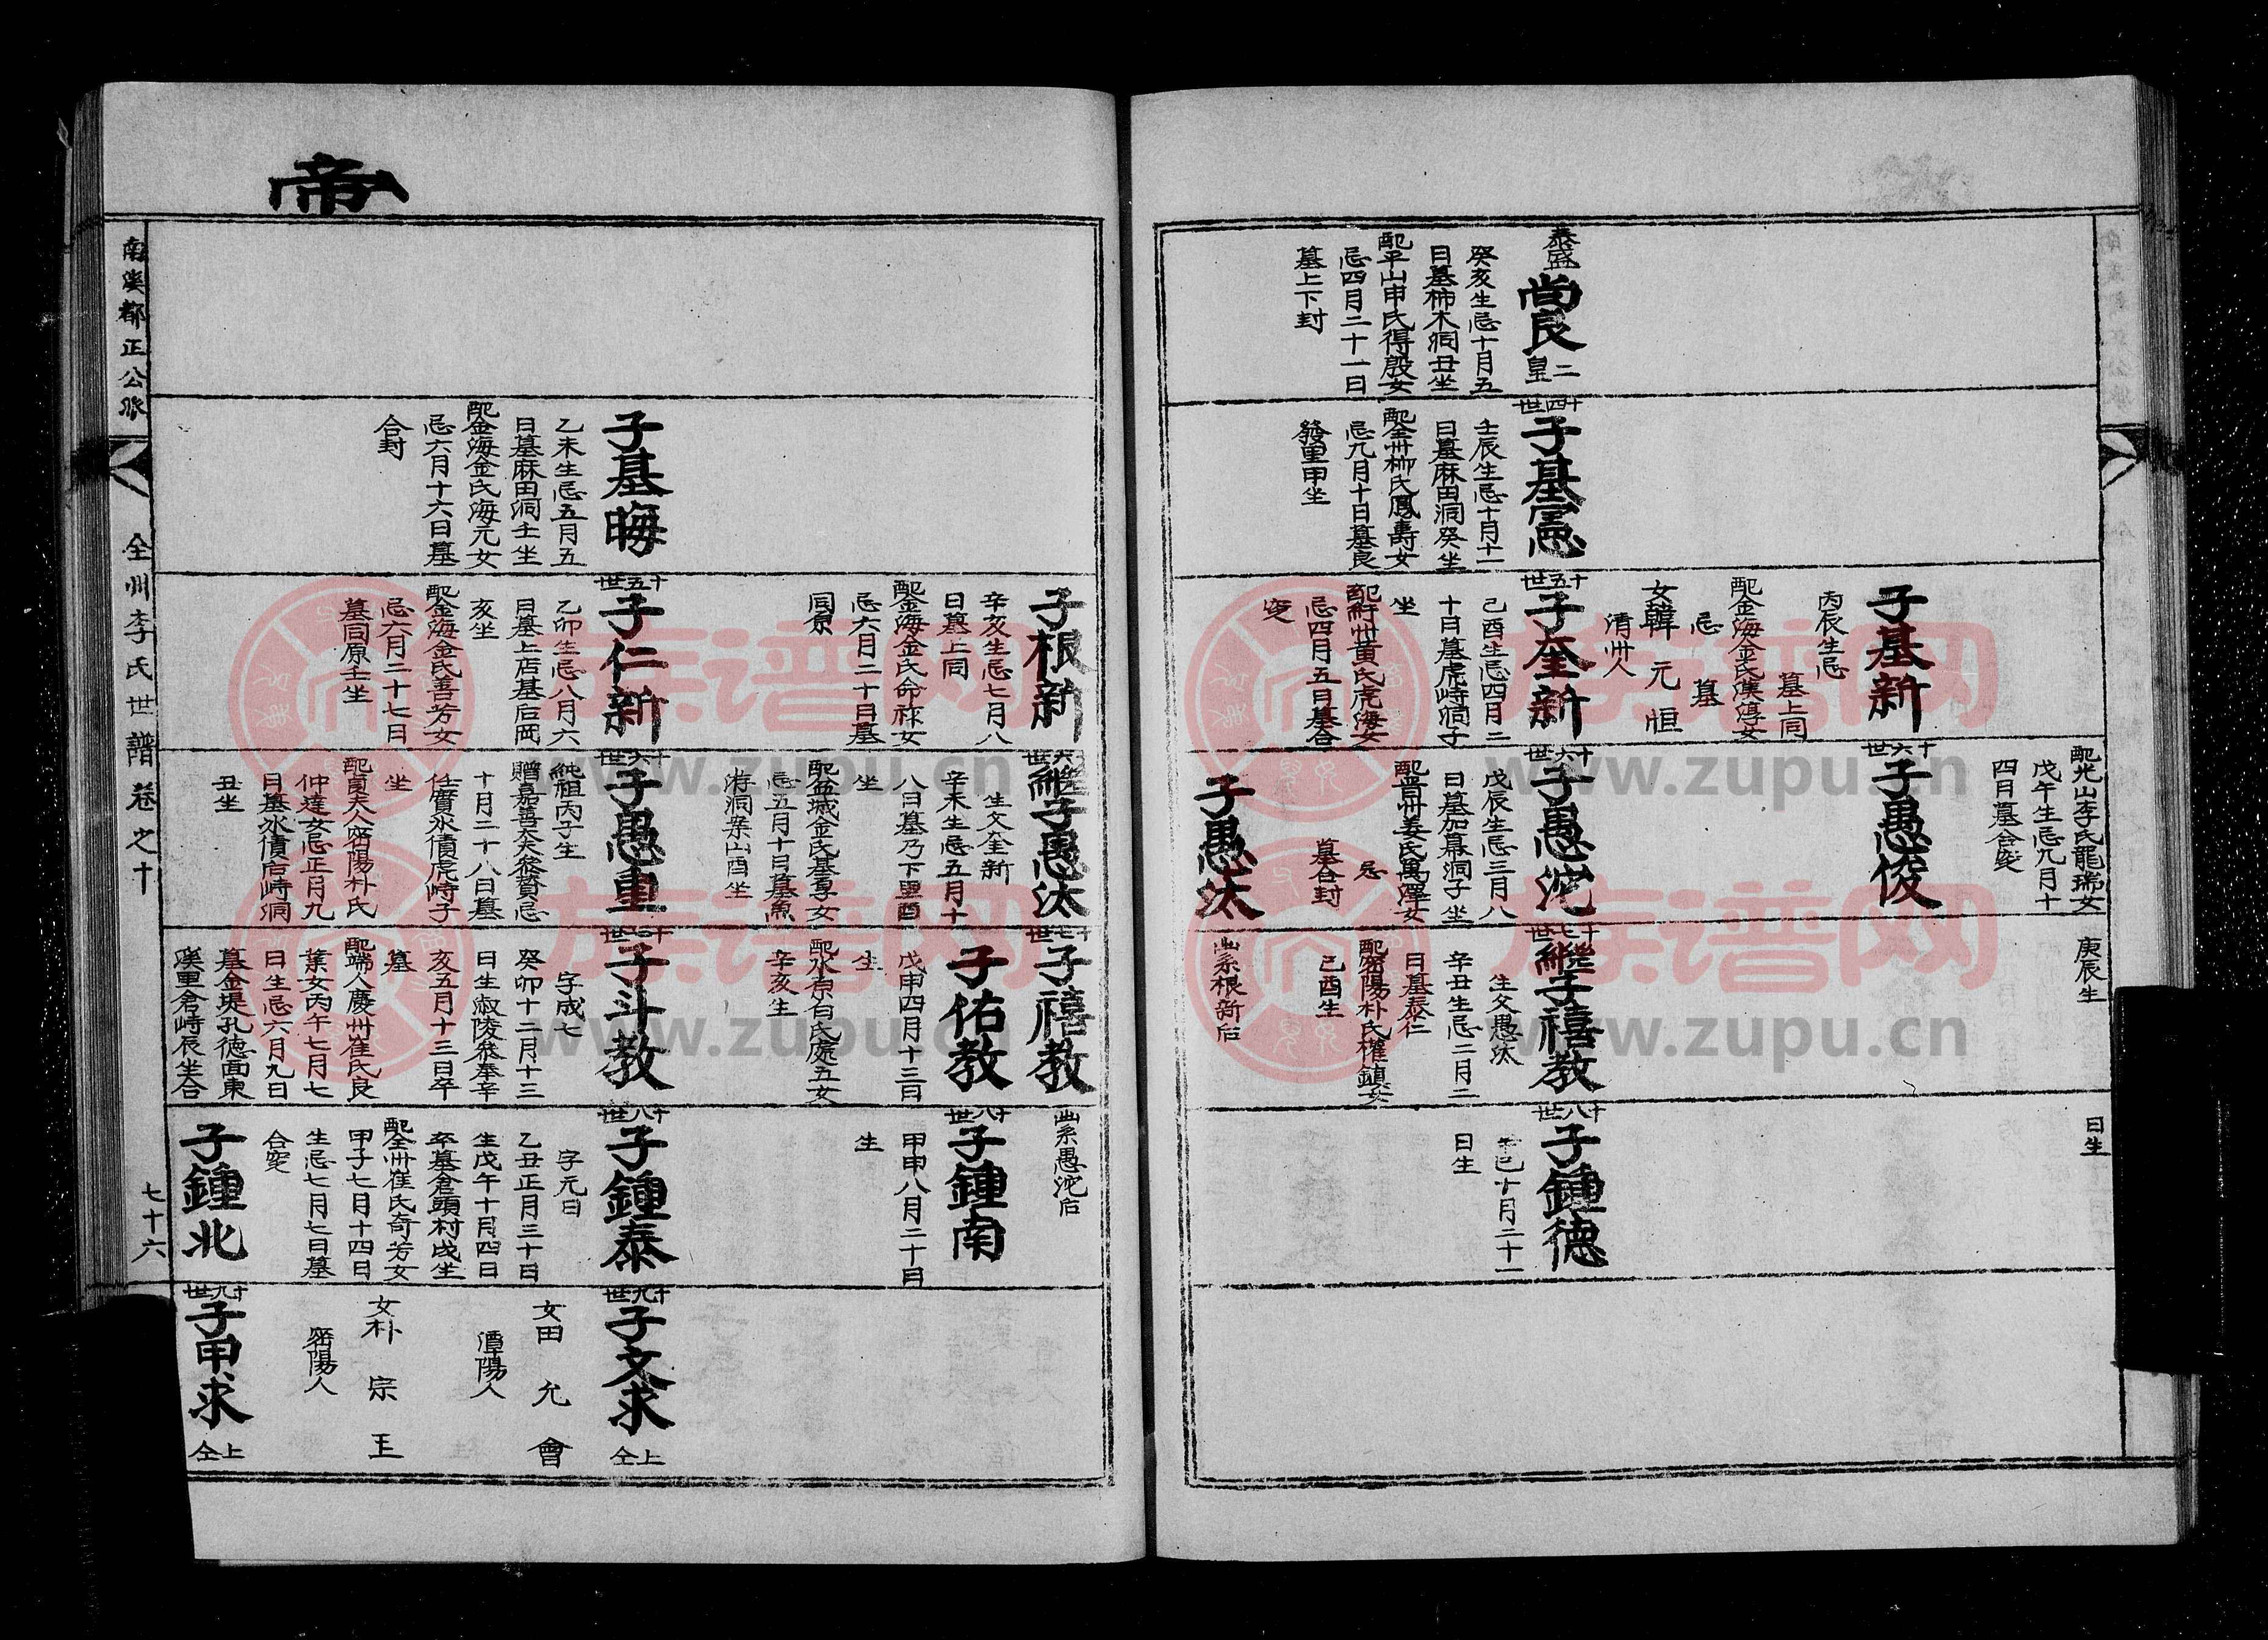 泰盛
尙良
二皇
癸亥生忌十月五
日墓柿木洞丑坐
配平山申氏得殷女
忌四月二十一日
墓上下封
十四世
子基憲
壬辰生忌十月十一
日墓麻田洞癸坐
配全州柳氏鳳壽女
忌九月十日墓良
發里甲坐
子基新
丙辰生忌
墓上同
配金海金氏漢淳女
忌 墓
女韓元恒
淸州人
十五世
子奎新
己酉生忌四月二
十日墓虎峙洞子
坐
配紆州黃氏虎海女
忌四月五日墓合
窆
配光山李氏龍瑞女
戊午生忌九月十
四日墓合窆
十六世
子愚俊
十六世
子愚沱
戊辰生忌三月八
日墓加幕洞子坐
配晋州姜氏萬澤女
忌
墓合封
子愚汰
庚辰生
十七世
繼子禧敎
生父愚汰
辛丑生忌二月二
日墓泰仁
配密陽朴氏權鎭女
己酉生
出系根新后
日生
十八世
子鍾德
辛巳十月二十一
日生
帝
南溪都正公派
全州李氏世譜卷之十
七十六
子基晦
乙未生忌五月五
日墓麻田洞壬坐
配金海金氏海元女
忌六月十六日墓
合封
子根新
辛亥生忌七月八
日墓上同
配金海金氏命祿女
忌六月二十日墓
同原
十五世
子仁新
乙卯生忌八月六
日墓上店基后岡
亥坐
配金海金氏善芳女
忌六月二十七日
墓同原壬坐
十六世
繼子愚汰
生父奎新
辛未生忌五月十
八日墓乃下里酉
坐
配益城金氏基享女
忌五月十日墓魚
洊洞案山酉坐
十六世
子愚重
純祖丙子生
贈嘉善大夫叅贊忌
十月二十八日墓
任實水債虎峙子
坐
配貞夫人密陽朴氏
仲達女忌正月九
日墓水債后峙洞
丑坐
十七世
子禧敎
子佑敎
戊申四月十三日
生
配水原白氏處五女
辛亥生
十七世
子斗敎
字成七
癸卯十二月十三
日生淑陵叅奉辛
亥五月十三日卒
墓
配端人慶州崔氏良
葉女丙午七月七
日生忌六月九日
墓金堤孔德面東
溪里倉峙辰坐合
出系愚沱后
十八世
子鍾南
甲申八月二十日
生
十八世
子鍾泰
字元日
乙丑正月三十日
生戊午十月四日
卒墓倉頭村戌坐
配全州崔氏奇芳女
甲子七月十四日
生忌七月七日墓
合窆
子鍾北
十九世
子文求
上仝
女田允會
潭陽人
女朴宗玉
密陽人
十九世
子甲求
上仝
族谱网
www.zupu.cn
族谱网
www.zupu.cn
族谱网
www.zupu.cn
族谱网
www.zupu.cn